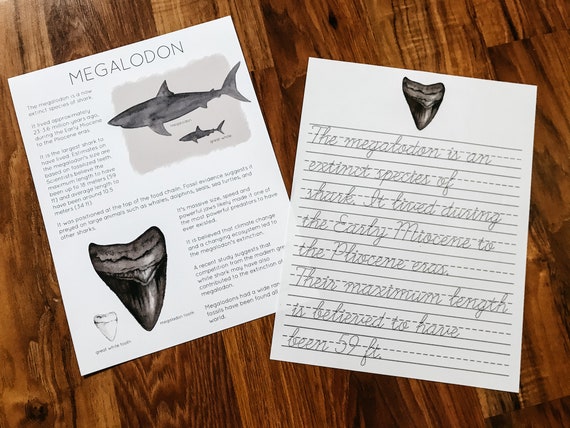 MEGALODON
The megalodon is a now
extinct species of shark.
It lived approximately
23-3.6 million years ago,
during the Early Miocene
to the Pliocene eras.
It is the largest shark to
have lived. Estimates on
the megalodon's size are
based on fossilized teeth.
Scientists believe the
maximum length to have
been up to 18 meters (59
ft) and average length to
have been around 10.5
meters (34 ft).
megalodon
great white
It was positioned at the top of the food chain. Fossil evidence suggests it
preyed on large animals such as whales, dolphins, seals, sea turtles, and
other sharks.
It's massive size, speed and
powerful jaws likely made it one of
the most powerful predators to have
ever existed.
It is believed that climate change
and a changing ecosystem led to
the megalodon's extinction.
A recent study suggests that
competition from the modern gre
white shark may have also
contributed to the extinction of
megalodon.
Megalodons had a wide ran
fossils have been found all
world.
megalodon tooth
great white tooth
The megalodon is an
extinct species of
shark. It lived during
the Early Miocene to
the Pliocene eras.
Their maximum length
is believed to have
been 59 ft.